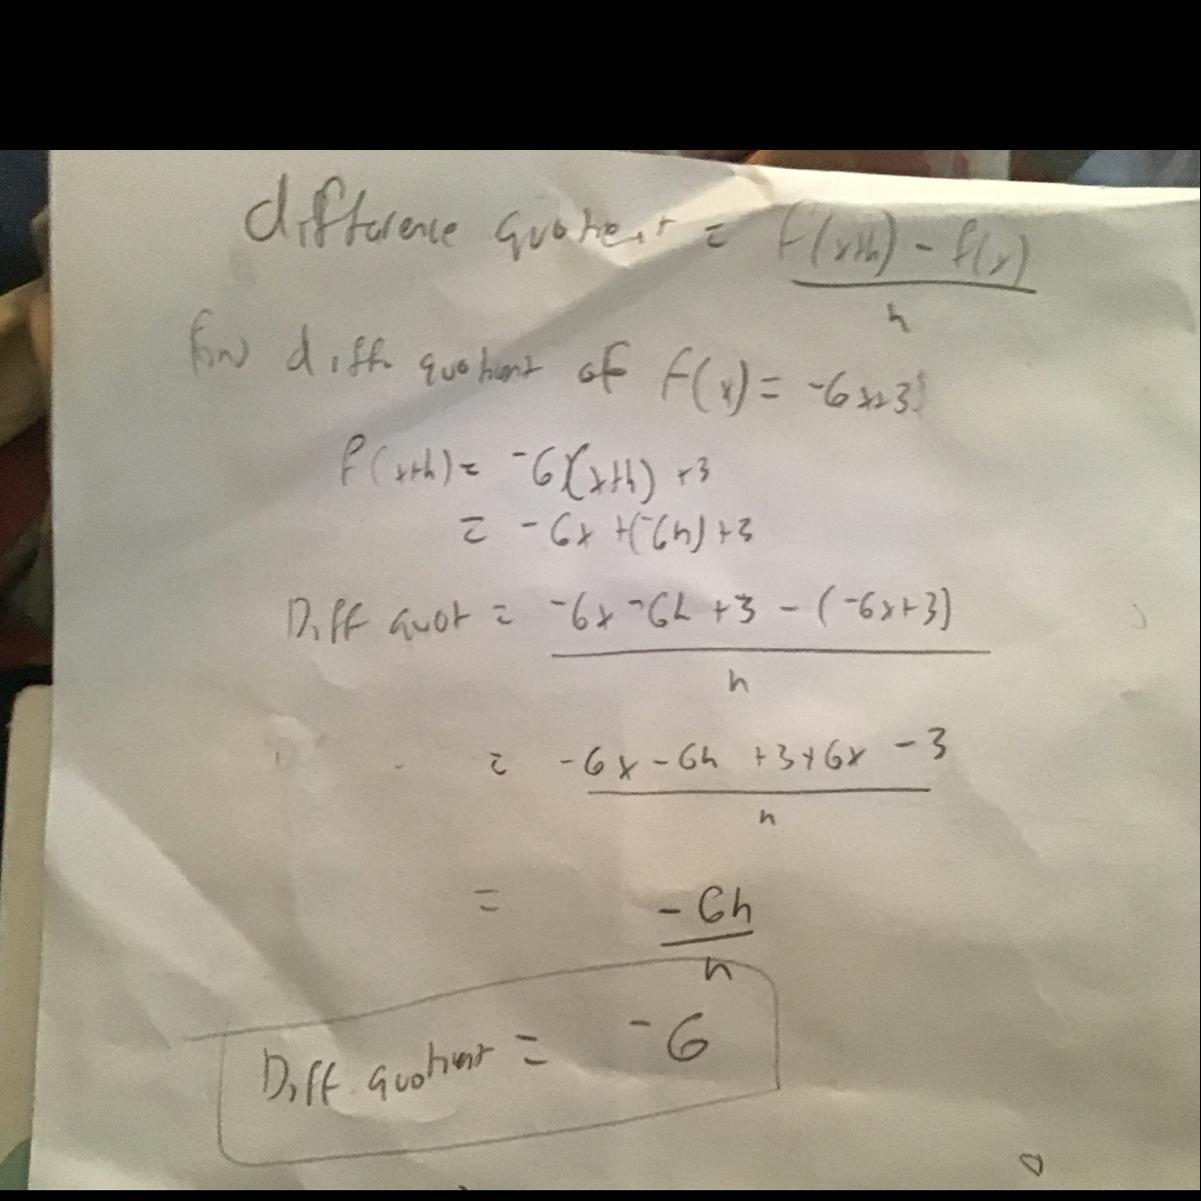 difference quotient = f(x+h) - f(x)
h
Find diff. quotient of f(x) = -6x+3
f(x+h) = -6(x+h) +3
= -6x +(-6h) +3
Diff quot = -6x -6h +3 - (-6x+3)
h
= -6x - 6h +3+6x -3
h
= -6h
h
Diff. quotient = -6